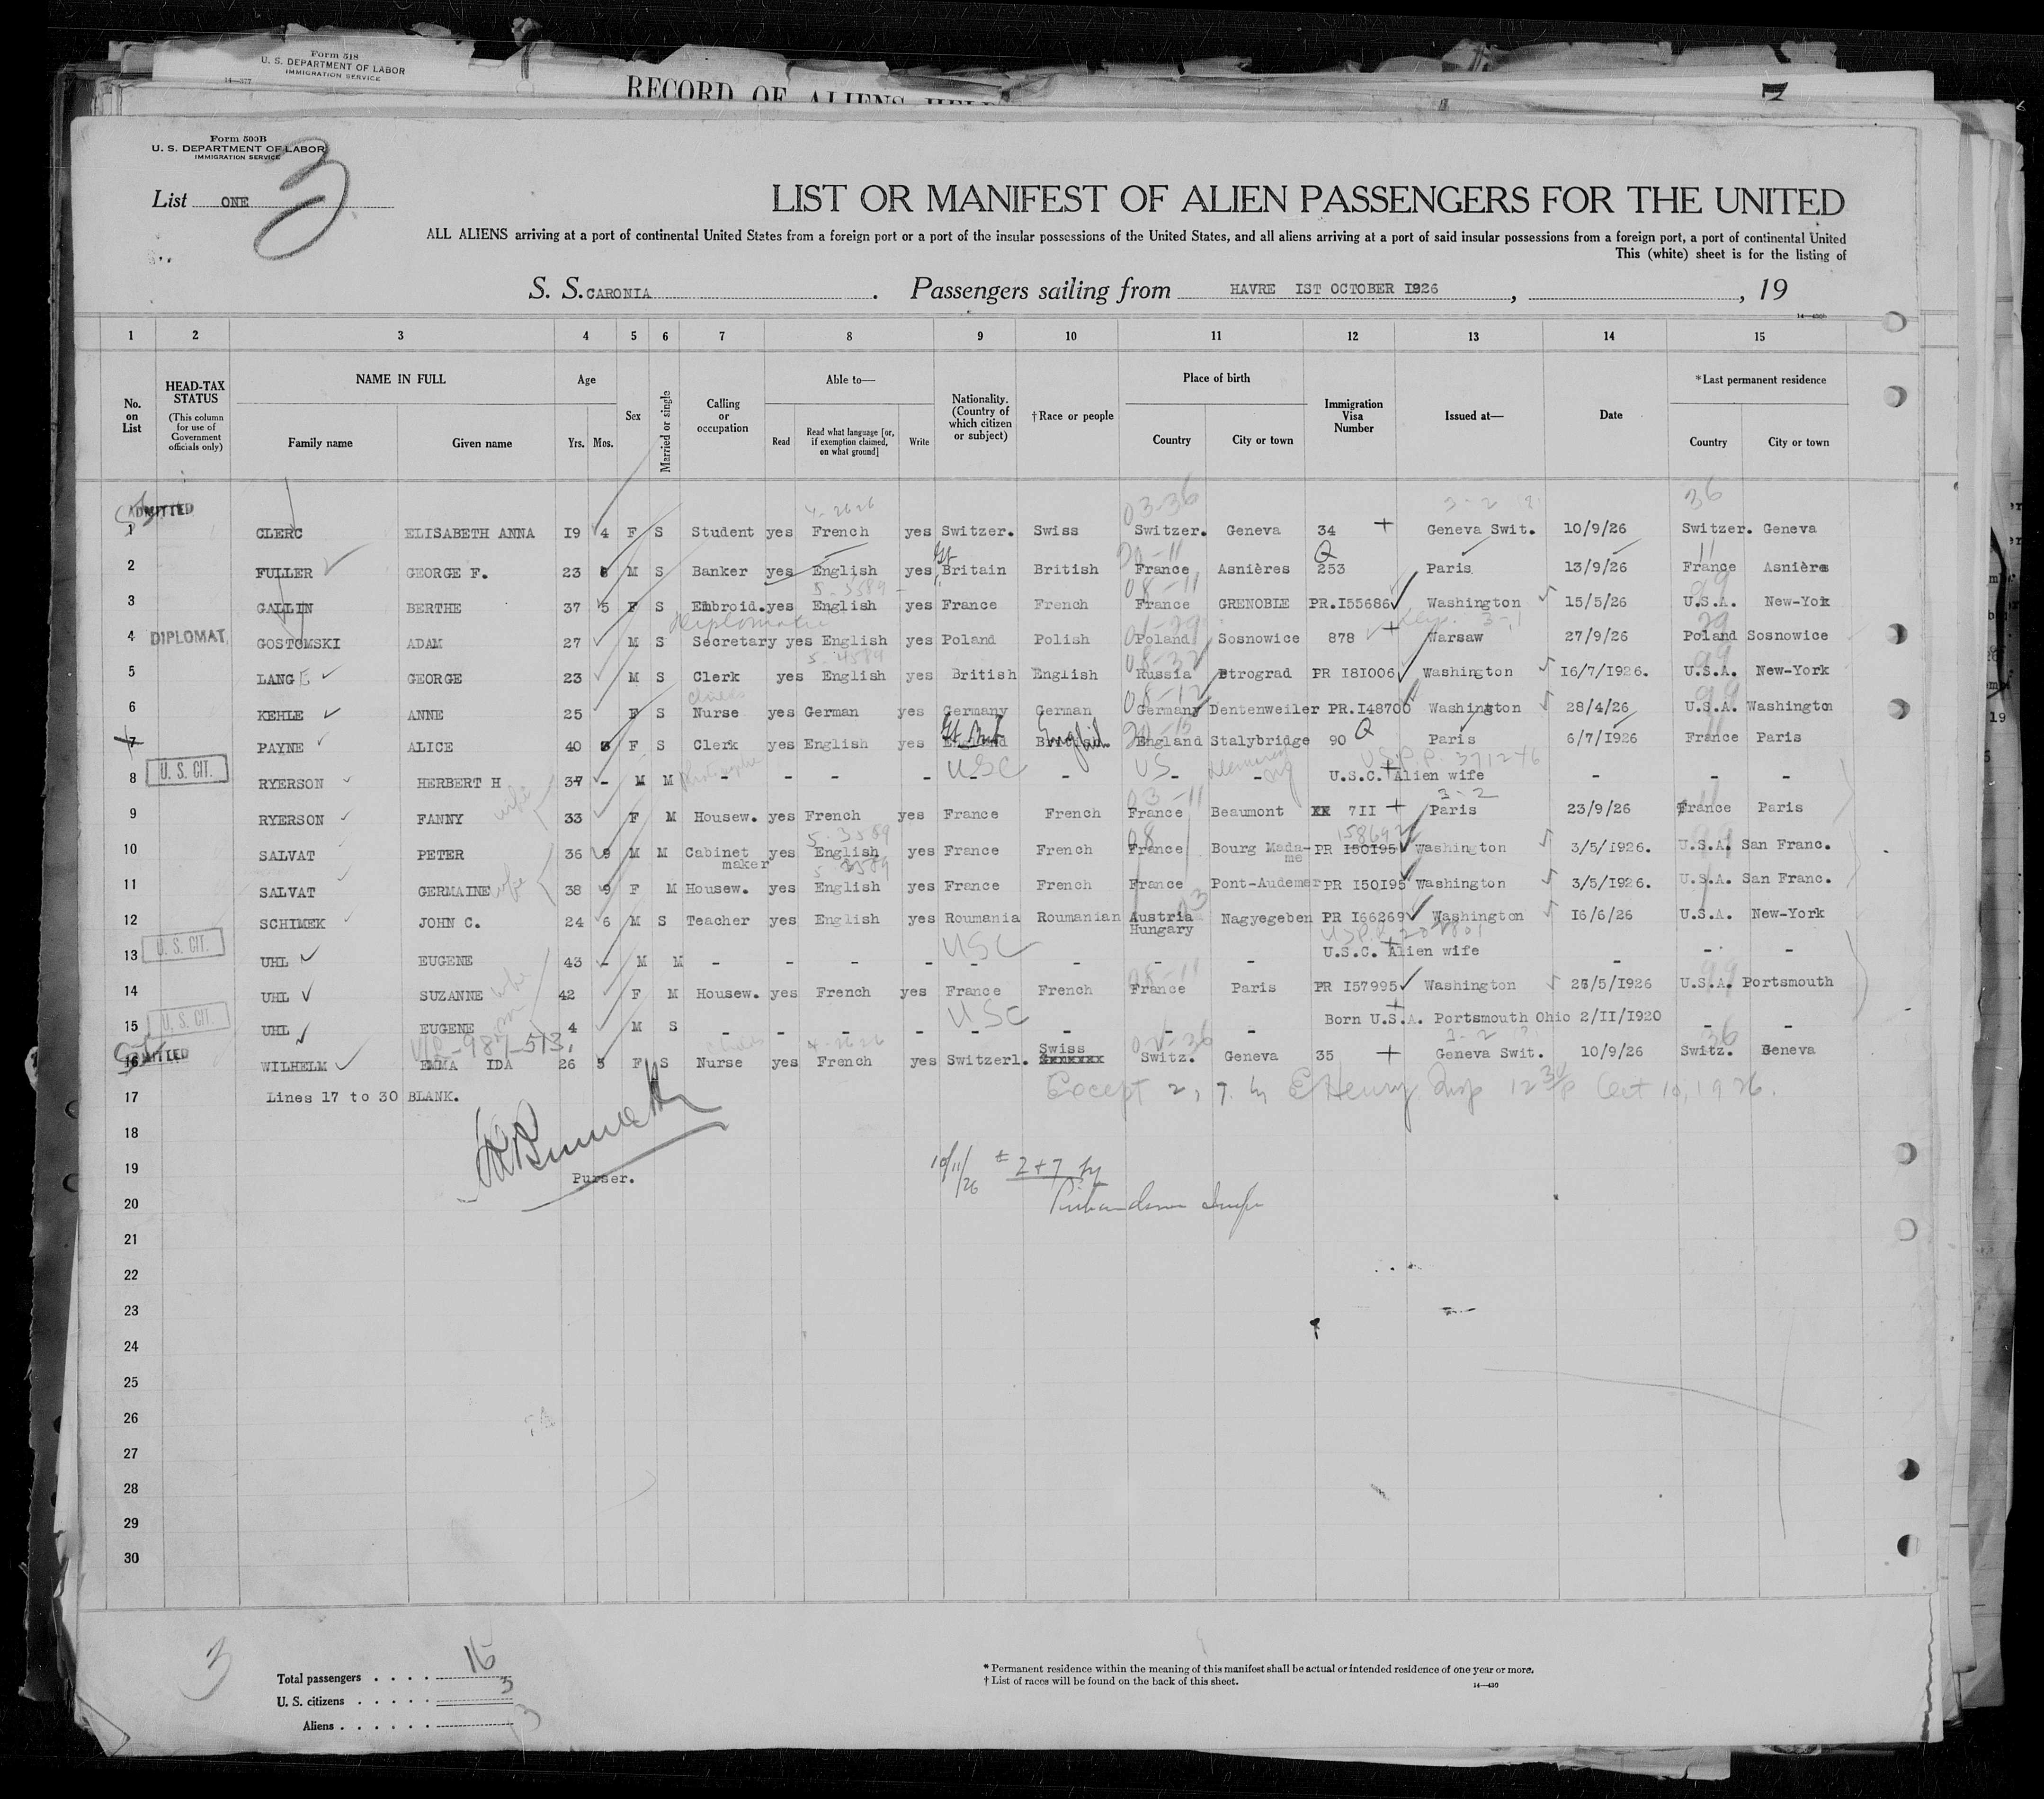 Form 518
U. S. DEPARTMENT OF LABOR
IMMIGRATION SERVICE
14—377
RECORD OF ALIENS HELD
Form 500B
U. S. DEPARTMENT OF LABOR
IMMIGRATION SERVICE
3
List ONE
LIST OR MANIFEST OF ALIEN PASSENGERS FOR THE UNITED
ALL ALIENS arriving at a port of continental United States from a foreign port or a port of the insular possessions of the United States, and all aliens arriving at a port of said insular possessions from a foreign port, a port of continental United
This (white) sheet is for the listing of
S. S. CARONIA. Passengers sailing from HAVRE IST OCTOBER I926, , 19
1 2 3 4 5 6 7 8 9 10 11 12 13 14 15
No. on List
HEAD-TAX STATUS (This column for use of Government officials only)
NAME IN FULL Family name Given name
Age Yrs. Mos.
Sex
Married or single
Calling or occupation
Able to— Read Read what language [or, if exemption claimed, on what ground] Write
Nationality. (Country of which citizen or subject)
†Race or people
Place of birth Country City or town
Immigration Visa Number
Issued at—
Date
*Last permanent residence Country City or town
ADMITTED
4-2626 03-36 3-2 36
1 CLERC ELISABETH ANNA I9 4 F S Student yes French yes Switzer. Swiss Switzer. Geneva 34 + Geneva Swit. 10/9/26 Switzer. Geneva
20-11 Q 11
2 FULLER GEORGE F. 23 M S Banker yes English yes Gt Britain British France Asnières 253 Paris 13/9/26 France Asnière
5-3589 08-11 99
3 GALLIN BERTHE 37 5 F S Embroid. yes English yes France French France GRENOBLE PR.I55686 Washington 15/5/26 U.S.A. New-Yok
Diplomatic 01-29 3-1 29
4 DIPLOMAT, GOSTOMSKI ADAM 27 M S Secretary yes English yes Poland Polish Poland Sosnowice 878 + Warsaw 27/9/26 Poland Sosnowice
5-4589 08-32 99
5 LANGE GEORGE 23 M S Clerk yes English yes British English Russia Ptrograd PR I8I006 Washington I6/7/I926. U.S.A. New-York
Childs 08-12 99
6 KEHLE ANNE 25 F S Nurse yes German yes Germany German Germany Dentenweiler PR.I48700 Washington 28/4/26 U.S.A. Washington
Gt Brit English 20-15 Q
7 PAYNE ALICE 40 F S Clerk yes English yes England British England Stalybridge 90 Paris 6/7/I926 France Paris
U. S. CIT. USC US U.S.P.P. 371246
8 RYERSON HERBERT H 37 - M M - - - - - - - - U.S.C. + Alien wife - - -
wife 03-11 3-2 11
9 RYERSON FANNY 33 F M Housew. yes French yes France French France Beaumont XX 7II + Paris 23/9/26 France Paris
5-3589 08 158692 99
10 SALVAT PETER 36 9 M M Cabinet maker yes English yes France French France Bourg Mada-me PR I50I95 Washington 3/5/I926. U.S.A. San Franc.
5-3589
11 SALVAT GERMAINE wife 38 9 F M Housew. yes English yes France French France Pont-Audemer PR I50I95 Washington 3/5/I926. U.S.A. San Franc.
03
12 SCHIMEK JOHN C. 24 6 M S Teacher yes English yes Roumania Roumanian Austria Hungary Nagyegeben PR I66269 Washington I6/6/26 U.S.A. New-York
U. S. CIT. USC
13 UHL EUGENE 43 - M M - - - - - - - - U.S.C. + Alien wife - - -
wife 08-11 99
14 UHL SUZANNE 42 F M Housew. yes French yes France French France Paris PR I57995 Washington 26/5/I926 U.S.A. Portsmouth
U. S. CIT. USC
15 UHL EUGENE 4 M S - - - - - - - - Born U.S.A. Portsmouth Ohio 2/II/I920 - -
ADMITTED
Childs 4-2626 3-2 36
16 WILHELM EMMA IDA 26 5 F S Nurse yes French yes Switzerl. Swiss Switz. Geneva 35 + Geneva Swit. 10/9/26 Switz. Geneva
17 Lines I7 to 30 BLANK.
Except 2, 7. by E Henry Insp 12 30/p Oct 10, 1926.
18
19 Purser. 10/11/26 ± 2+7 by
20
21
22
23
24
25
26
27
28
29
30
3
Total passengers 16
U. S. citizens 3
Aliens 13
* Permanent residence within the meaning of this manifest shall be actual or intended residence of one year or more.
† List of races will be found on the back of this sheet.
14—430